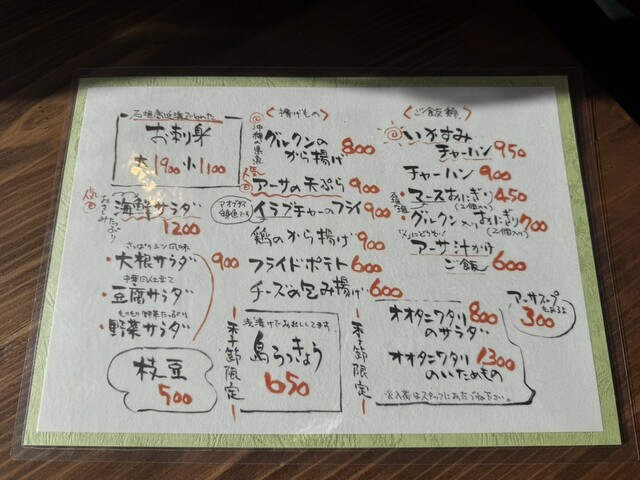 石垣島近海でとれた
お刺身
大1900 小1100
人気
おさしみたっぷり
海鮮サラダ
1200
さっぱりユズ風味
・大根サラダ
中華風仕立て
・豆腐サラダ
・野菜サラダ
900
枝豆
500
<揚げもの>
沖縄の県魚
グルクンの
から揚げ 800
人気
アーサの天ぷら 900
イラブチャーのフライ 900
鶏のから揚げ 900
フライドポテト 600
チーズの包み揚げ 600
季節限定
浅漬けでお出ししてます
島らっきょう
650
<ご飯類>
いかすみ
チャーハン 950
チャーハン 900
マースおにぎり 450
(2個入り)
グルクン入りおにぎり 700
(2個入り)
〆にどうぞ!
アーサ汁かけ
ご飯 600
アーサスープ
300
季節限定
オオタニワタリ 800
のサラダ
オオタニワタリ 1300
のいためもの
※入荷はスタッフにおたずね下さい。